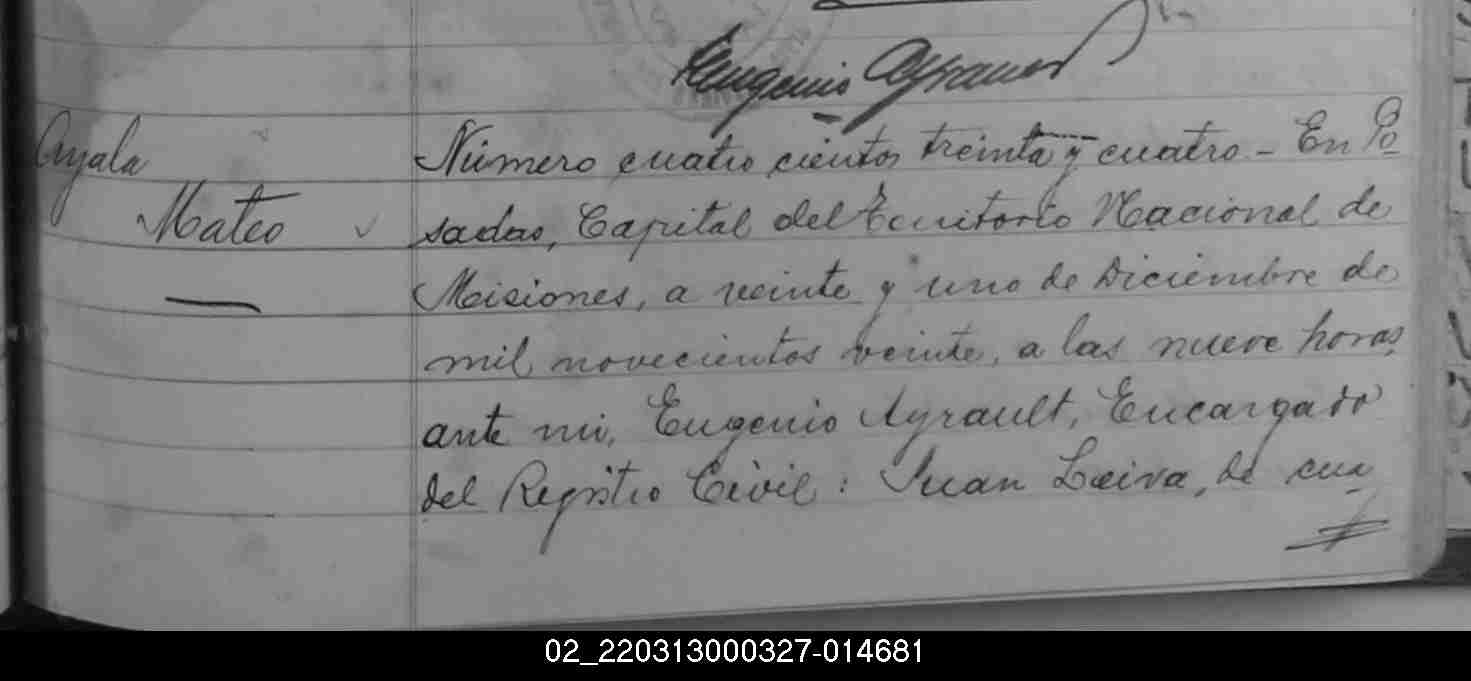 Eugenio Ayrault
Ayala
Mateo
Número cuatro cientos treinta y cuatro - En Po
sadas, Capital del Territorio Nacional de
Misiones, a veinte y uno de Diciembre de
mil novecientos veinte, a las nueve horas,
ante mi, Eugenio Ayrault, Encargado
del Registro Civil: Juan Leiva, de cua
02_220313000327-014681